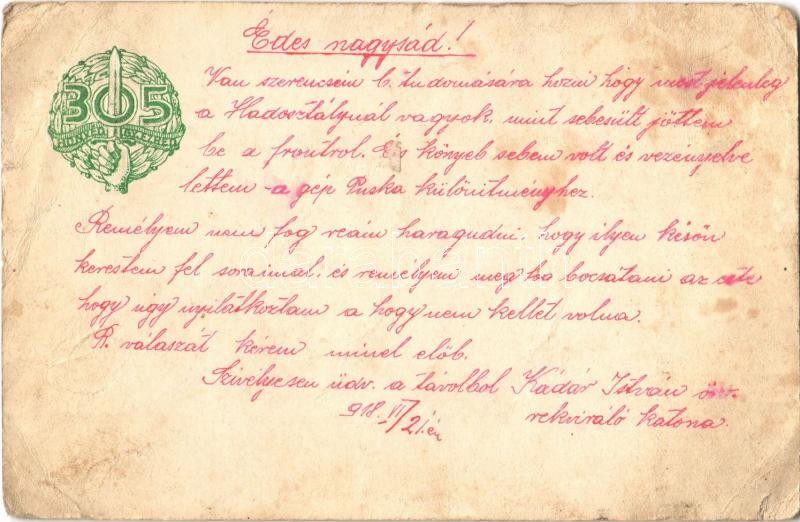 Édes nagysád!
305
HONVÉD GYALOGEZRED
Van szerencsém b. tudomására hozni hogy most jelenleg
a Hadosztálynál vagyok, mint sebesült jöttem
be a frontrol. Én könyeb sebem volt és vezényelve
lettem a gép Puska különitményhez.
Remélyem nem fog reám haragudni, hogy ilyen késön
kerestem fel soraimal, és remélyem meg boa bocsátani az
hogy ugy nyilátkoztam a hogy nem kellet volna.
R. válaszát kérem minel elöb.
Szivélyesen üdv. a távolbol Kádár István örv.
918. VI/21.én rekviráló katona.